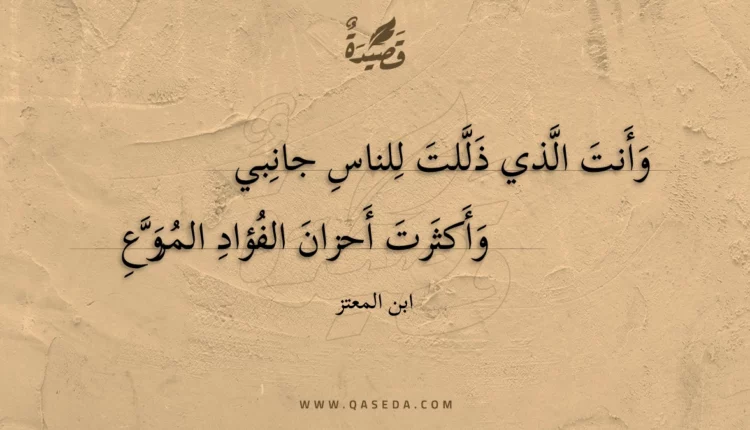 قَصِيْدَةٌ
وَأَنتَ الَّذي ذَلَّلتَ لِلناسِ جانِبي
وَأَكثَرتَ أَحزانَ الفُؤادِ المُوَزَّعِ
ابن المعتز
WWW.QASEDA.COM